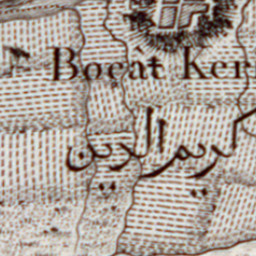 Bocât Keri
كريم الدين